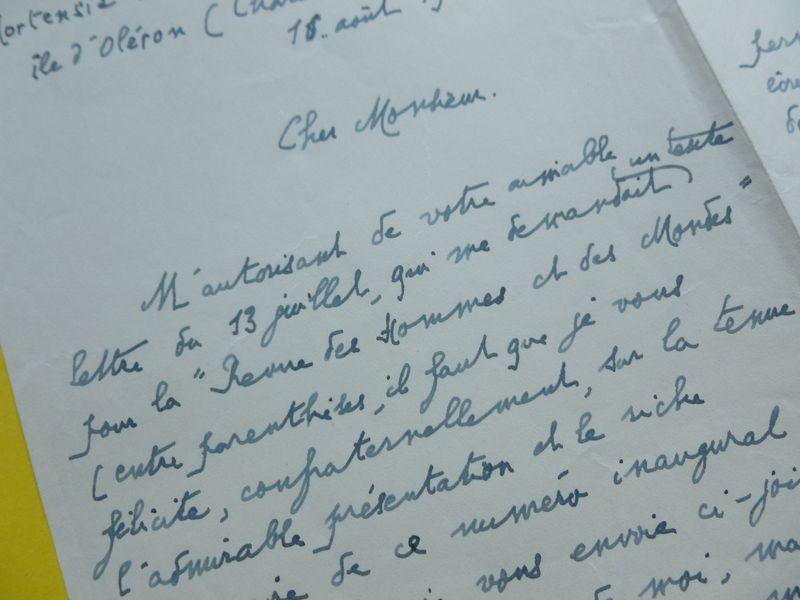 île d'Oléron (
18 août
Cher Monsieur.
M'autorisant de votre aimable
lettre du 13 juillet, qui me demandait un texte
pour la "Revue des Hommes et des Mondes"
(entre parenthèses, il faut que je vous
félicite, confraternellement, sur la tenue
l'admirable présentation et le riche
de ce numéro inaugural
vous envoie ci-joi
de moi, ma